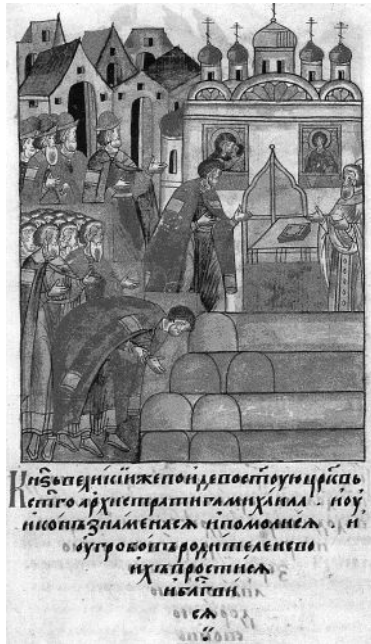 Кнѕь великїи же поиде во стоую црквь
стго архистратига михаила . и оу
иконъ знаменася и помолися и
оу гробовъ родителеи сво
ихъ простися
и блгви
ся